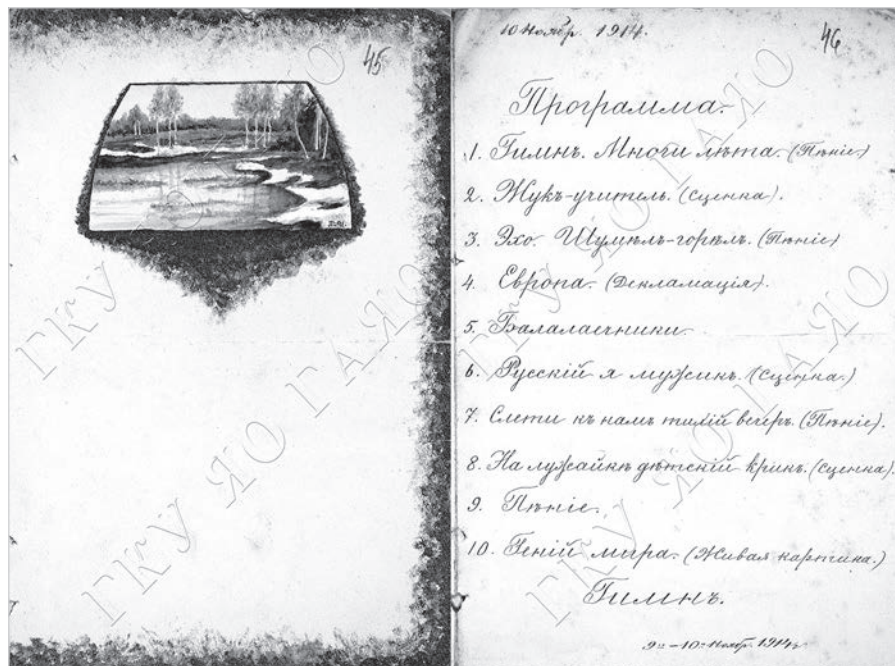 45
10 Ноябр. 1914.
46
Программа.
1. Гимнъ. Многи лѣта. (Пѣніе)
2. Жукъ-учитель. (Сценка).
3. Эхо. Шумѣлъ-горѣлъ. (Пѣніе)
4. Европа. (Декламація).
5. Балалаечники
6. Русскій я мужикъ. (Сценка.)
7. Слети къ намъ тихій вечеръ. (Пѣніе).
8. На лужайкѣ дѣтскій крикъ. (Сценка).
9. Пѣніе.
10. Геній мира. (Живая картина.)
Гимнъ.
9го-10го Ноябр. 1914г.
ГКУ ЯО ГАЯО
ГКУ ЯО ГАЯО